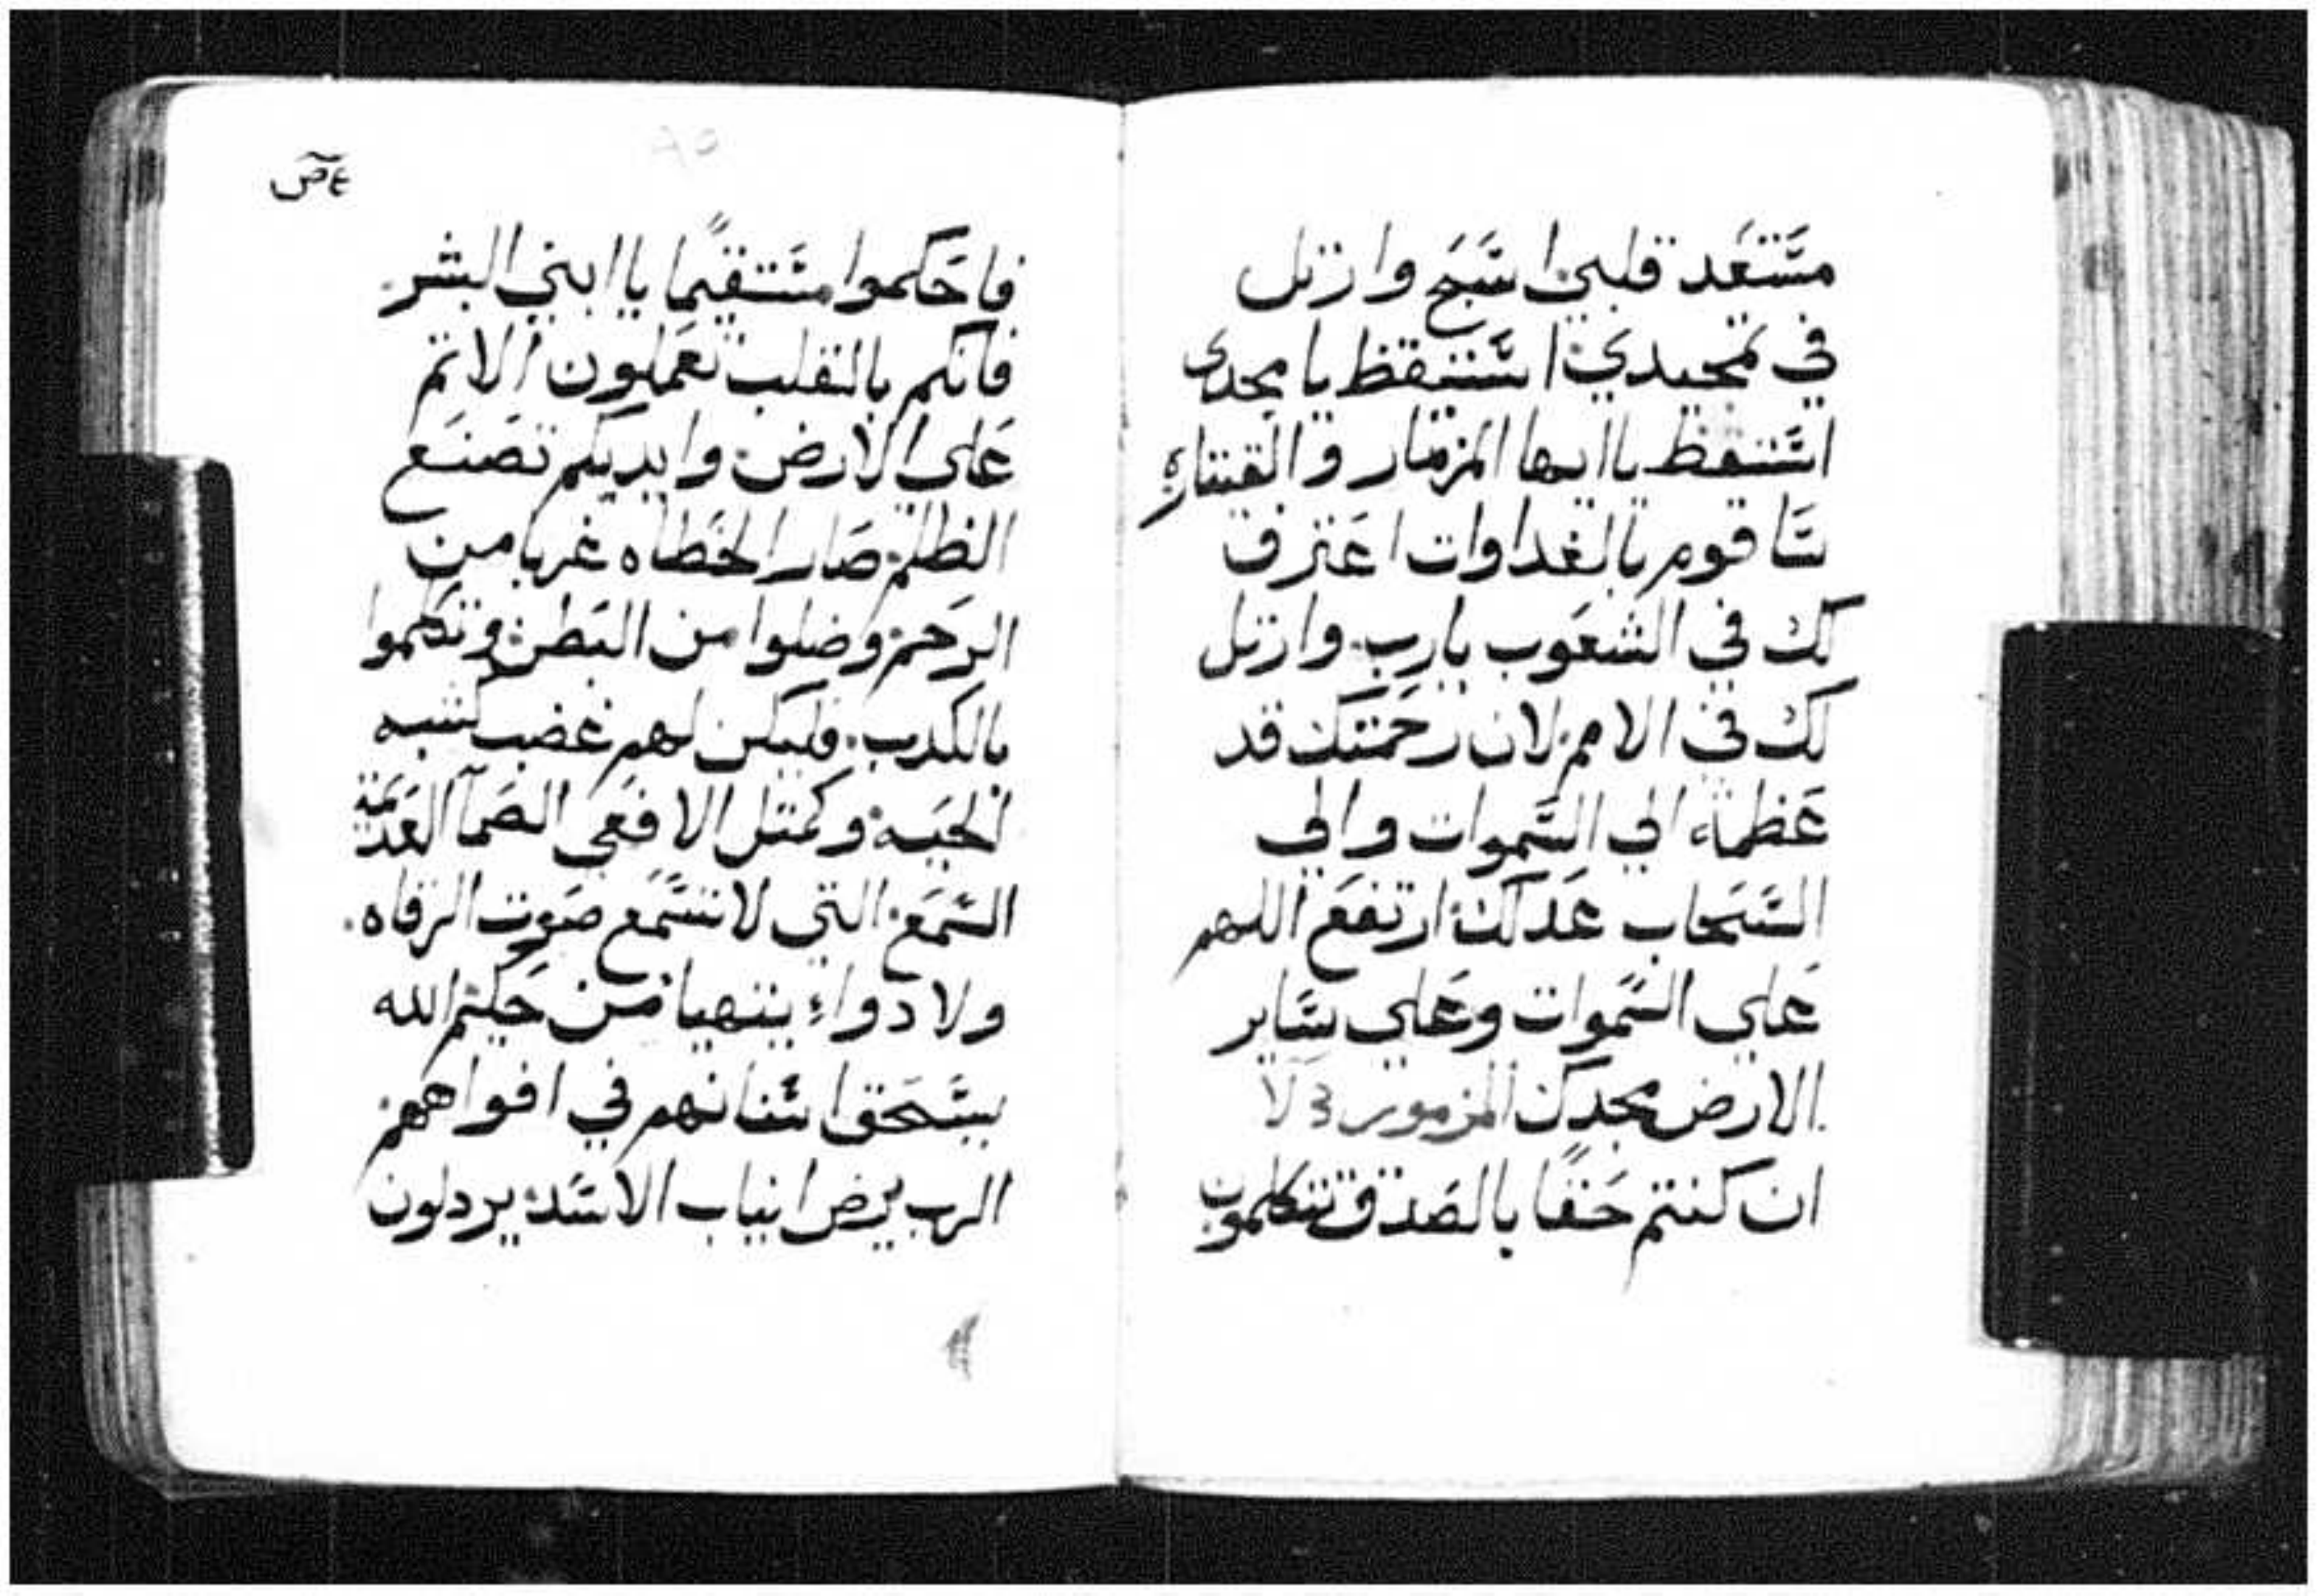 مستعد قلبي اسبح وارتل
في تمجيدي استيقظ يا مجدى
استيقظ ياايها المزمار والقيتاره
ساقوم بالغداوات اعترف
لك في الشعوب يارب وارتل
لك في الامم لان رحمتك قد
عظمة الي السموات والي
السحاب عدلك ارتفع اللهم
علي السموات وعلي ساير
الارض مجدك المزمور
ان كنتم حقا بالصدق تتكلمون
فاحكموا مستقيما ياابني البشر
فانكم بالقلب تعملون الاتم
علي الارض وايديكم تصنع
الظلم صار الخطاه غربا من
الرحم وضلوا من البطن وتكلموا
بالكدب فليكن لهم غضب كشبه
الحيه وكمتل الافعي الصمآ العديمة
السمع التي لا تسمع صوت الرقاه
ولا دواء يتهيا من حكيم الله
يسحق اسنانهم في افواههم
الرب يرض انياب الاسد يردلون